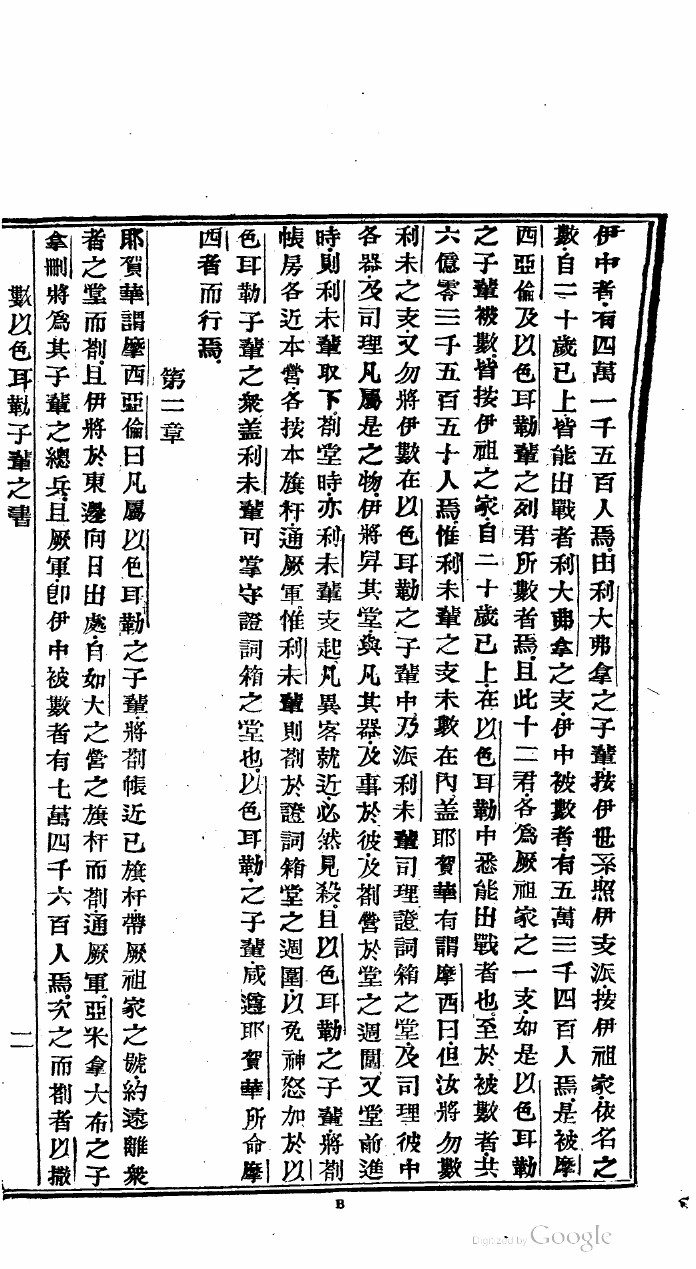 伊中者有四萬一千五百人焉由利大弗拿之子輩按伊世系照伊支派按伊祖家依名之
數自二十歲已上皆能出戰者利大弗拿之支伊中被數者有五萬三千四百人焉是被摩
西亞倫及以色耳勒輩之列君所數者焉且此十二君各為厥祖家之一支如是以色耳勒
之子輩被數皆按伊祖之家自二十歲已上在以色耳勒中悉能出戰者也至於被數者共
六億零三千五百五十人焉惟利未輩之支未數在內盖耶賀華有謂摩西曰但汝將勿數
利未之支又勿將伊數在以色耳勒之子輩中乃派利未輩司理證詞箱之堂及司理彼中
各器及司理凡屬是之物伊將舁其堂與凡其器及事於彼及劄營於堂之週圍又堂前進
時則利未輩取下劄堂時亦利未輩支起凡異客就近必然見殺且以色耳勒之子輩將劄
帳房各近本營各按本旗杆通厥軍惟利未輩則劄於證詞箱堂之週圍以免神怒加於以
色耳勒子輩之衆盖利未輩可掌守證詞箱之堂也以色耳勒之子輩咸遵耶賀華所命摩
西者而行焉
第二章
耶賀華謂摩西亞倫曰凡屬以色耳勒之子輩將劄帳近已旗杆帶厥祖家之號約遠離衆
者之堂而劄且伊將於東邊向日出處自如大之營之旗杆而劄通厥軍亞米拿大布之子
拿刪將為其子輩之總兵且厥軍卽伊中被數者有七萬四千六百人焉次之而劄者以撒
數以色耳勒子輩之書 二
B
Digitized by Google